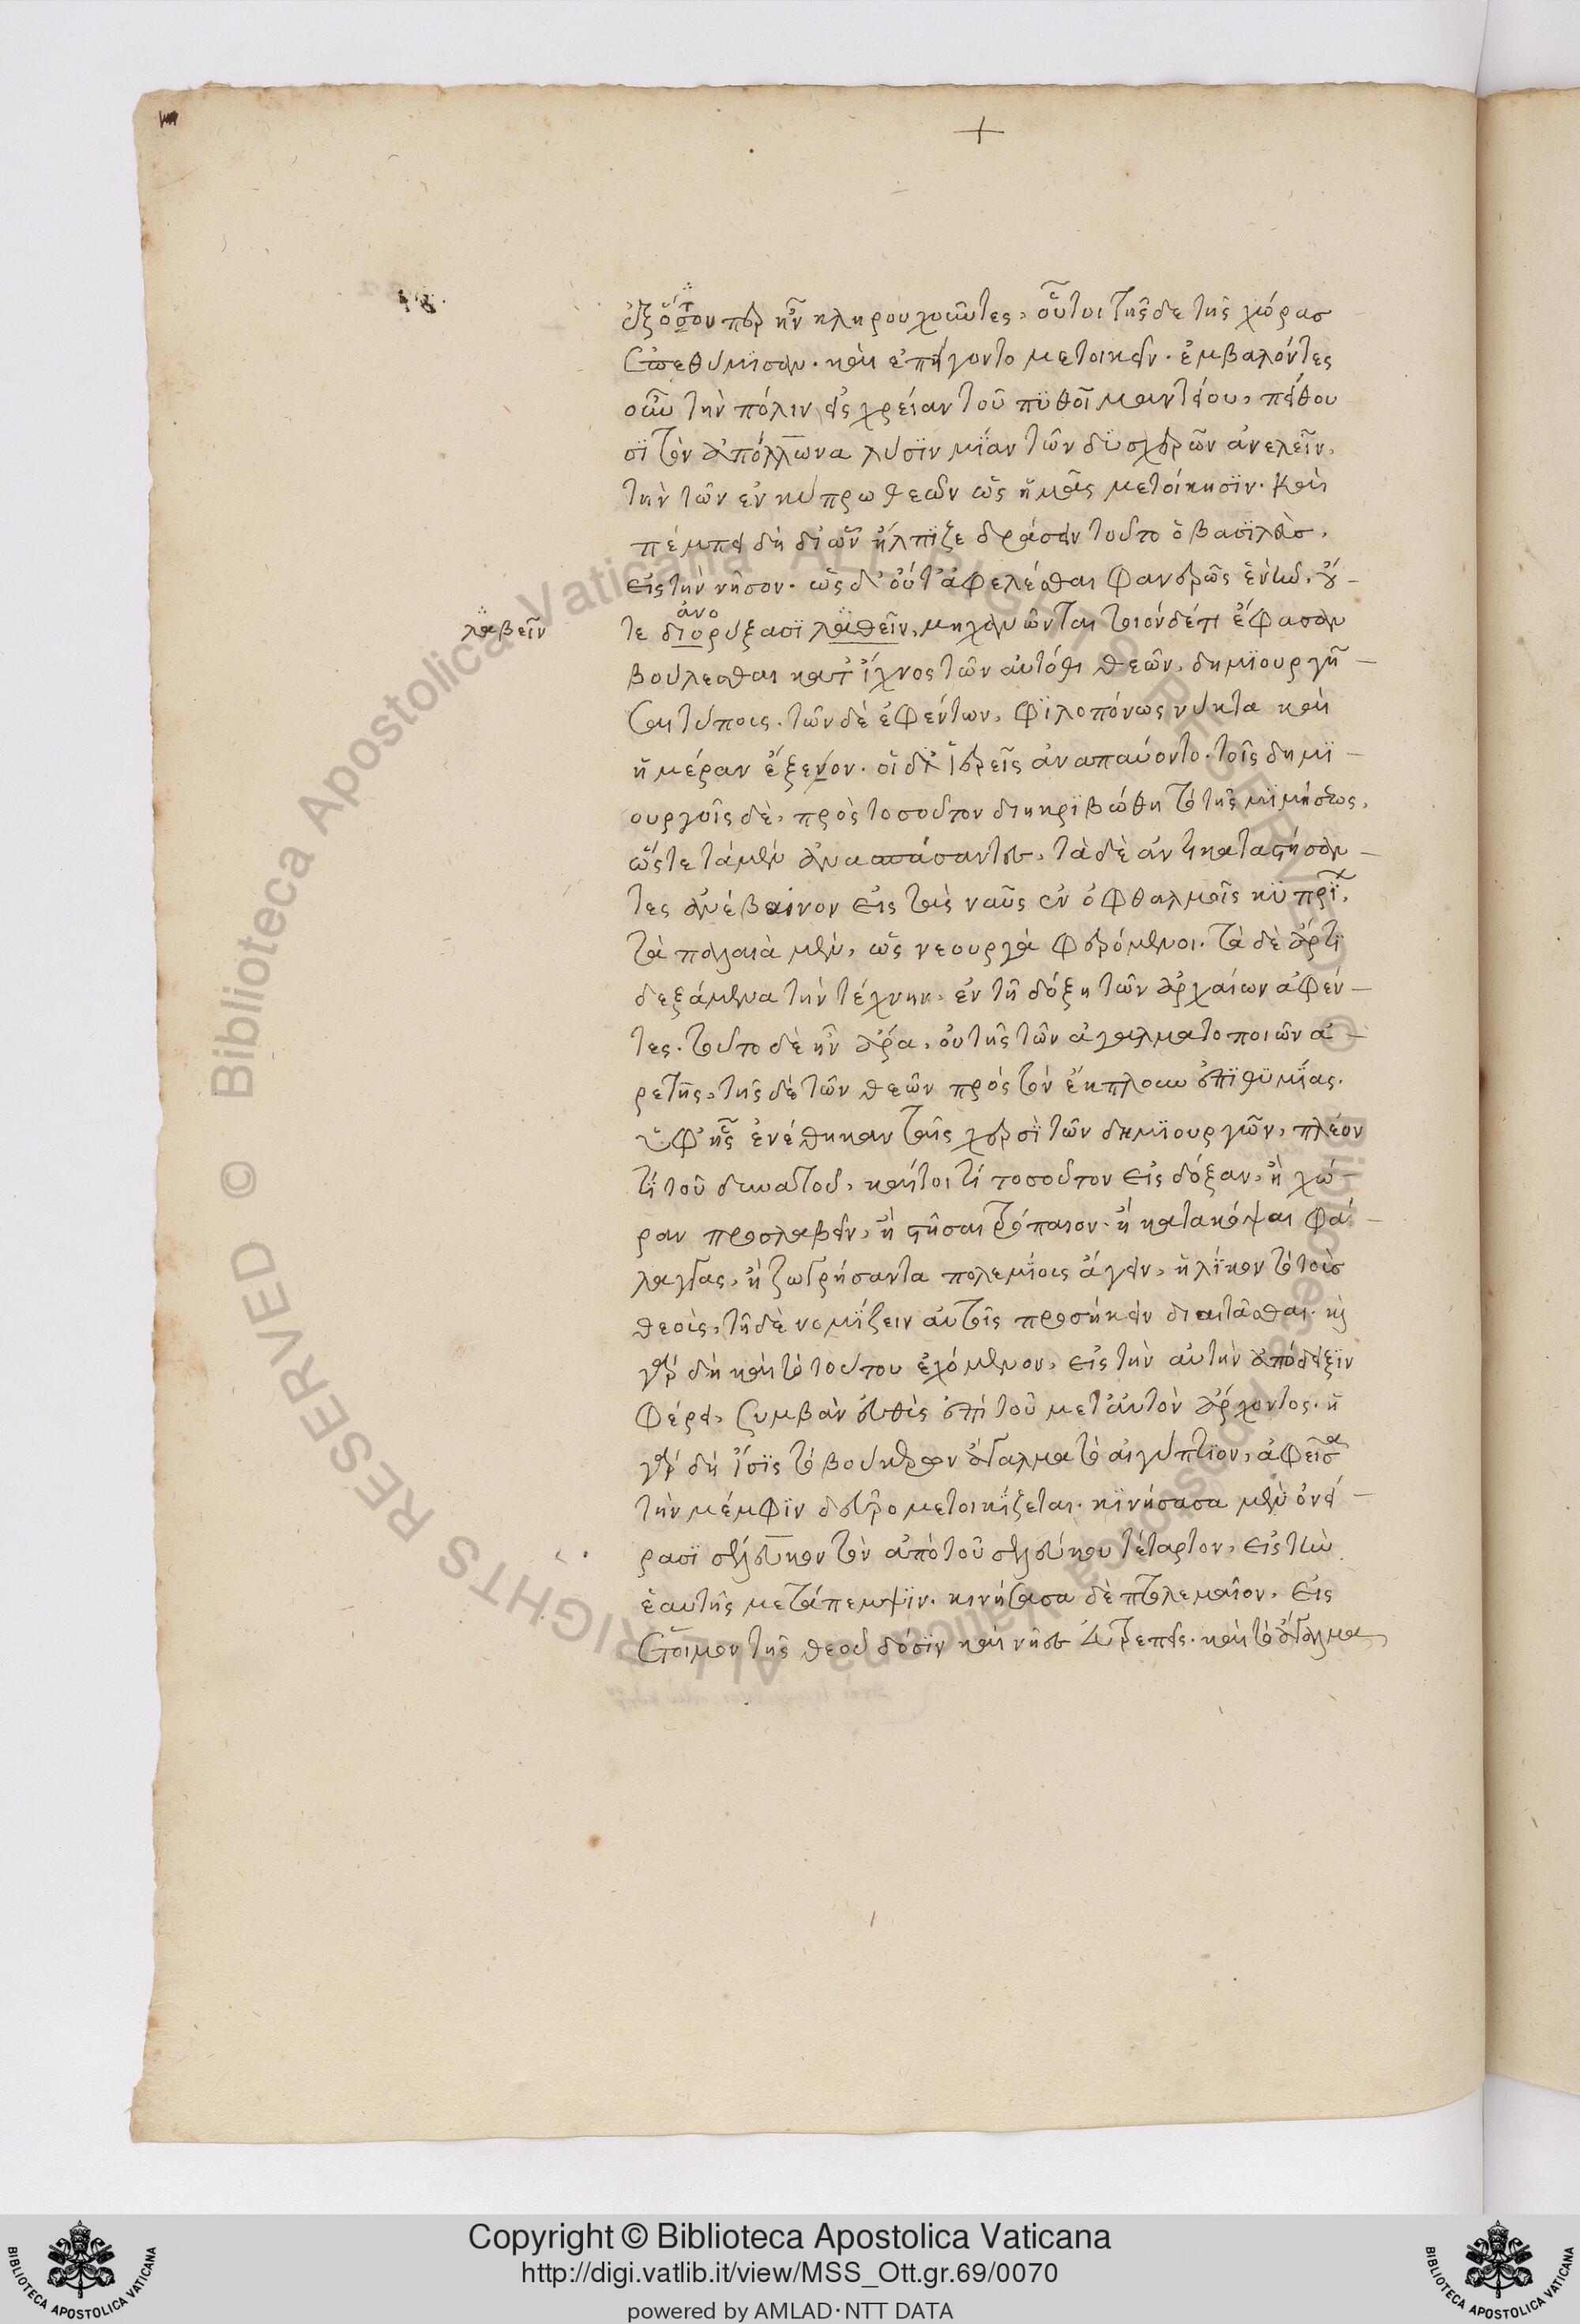 +
ἐξ ὅσουπερ ἦν κληρουχοῦντες, οὗτοι τῆς δε τῆς χώρας
ἐπεθύμησαν. καὶ ἐπήγοντο μετοικεῖν. ἐμβαλόντες
οὖν τὴν πόλιν εἰς χρείαν τοῦ πυθοῖ μαντείου, πείθου
σϊ τὸν ἀπόλλωνα λύσϊν μίαν τῶν δϋσχερῶν ἀνελεῖν,
τὴν τῶν ἐν κύπρω θεῶν ὡς ἡμᾶς μετοίκησϊν. καὶ
πέμπει δὴ δι ὧν ἤλπϊζε δράσειν τοῦτο ὁ βασϊλεὺς,
εἰς τὴν νῆσον. ὡς δ' οὔτ' ἀφελέσθαι φανερῶς ἐνῆν, οὔ-
λαβεῖν
ανο
τε διορύξασϊ λαθεῖν, μηχανῶνται τοιόνδέτι ἔφασαν
βούλεσθαι κατ' ἴχνος τῶν αὐτόθι θεῶν, δημϊουργῆ-
σαι τύπους. τῶν δὲ ἐφέντων, φϊλοπόνως νύκτα καὶ
ἡμέραν ἔξενον. οἱ δ' ἱερεῖς ἀναπαύοντο. τοῖς δημϊ-
ουργοῖς δὲ, πρὸς τοσοῦτον διηκρϊβώθη τὸ τῆς μϊμήσεως,
ὥς τε τὰ μὲν ἀνασπάσαντες, τὰ δὲ ἀντικαταστήσαν-
τες ἀνέβαινον εἰς τὰς ναῦς ἐν ὀφθαλμοῖς κϋπρΐ,
τὰ παλαιὰ μὲν, ὡς νεουργὰ φερόμενοι. τὰ δὲ ἄρτϊ
δεξάμενα τὴν τέχνην, ἐν τῆ δόξη τῶν ἀρχαίων ἀφέν-
τες. τοῦτο δὲ ἦν ἄρα, οὐ τῆς τῶν ἀγαλματοποιῶν ἀ-
ρετῆς, τῆς δὲ τῶν θεῶν πρὸς τὸν ἔκπλουν ἐπϊθϋμίας.
ὑφ' ἧς ἐνέθηκαν ταῖς χερσὶ τῶν δημϊουργῶν, πλέον
τί τοῦ δυνατοῦ, καίτοι τί τοσοῦτον εἰς δόξαν, ἢ χώ-
ραν προσλαβεῖν, ἢ στῆσαι τρόπαιον. ἢ κατακόψαι φά-
λαγγας, ἢ ζωγρήσαντα πολεμίους ἄγειν, ἡλίκον τὸ τοὺς
θεοὺς, τῆδὲ νομϊζειν αὐτοῖς προσήκειν διαιτᾶσθαι. κὶ
γὰρ δὴ καὶ τὸ τούτου ἐχόμενον, εἰς τὴν αὐτὴν ἀπόδειξϊν
φέρει, ξυμβὰν εὐθὺς ἐπὶ τοῦ μετ' αὐτὸν ἄρχοντος. ἡ
γὰρ δὴ ἴσϊς τὸ βούκερων ἄγαλμα τὸ αἰγύπτϊον, ἀφεῖσα
τὴν μέμφϊν δεῦρο μετοικΐζεται. κϊνήσασα μὲν ὀνεί-
ρασϊ σέλευκον τὸν ἀπὸ τοῦ σελεύκου τέταρτον, εἰς τὴν
ἑαυτῆς μετάπεμψϊν. κινήσασα δὲ πτολεμαῖον, εἰς
ἕτοιμον τῆς θεοῦ δόσϊν καὶ νῆες εὐτρεπεῖς. καὶ τὸ ἄγαλμα
Copyright © Biblioteca Apostolica Vaticana
http://digi.vatlib.it/view/MSS_Ott.gr.69/0070
powered by AMLAD·NTT DATA